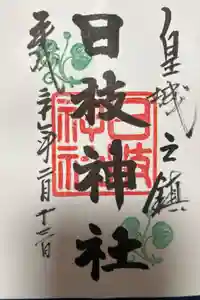 皇城之鎮
日枝神社
日枝
神社
平成 年二月十三日